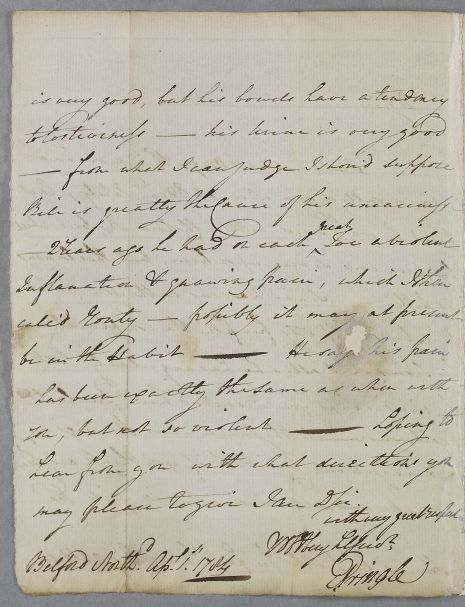 is very good, but his bowels have a tendency
to Costiveness — his Urine is very good
— from what I can judge I shou'd suppose
Bile is greatly the Cause of his uneasiness —
2 Years ago he had on each great Toe a violent
Inflamation & gnawing pain, which I then
call'd Gouty — possibly it may at present
be in the Habit — He says his pain
has been exactly the same as when with
you, but not so violent — Hoping to
hear from you with what directions you
may please to give I am Dr Sir
with very great
Yr Very
Belford North.d Ap.l 1.st 1784
Pringle